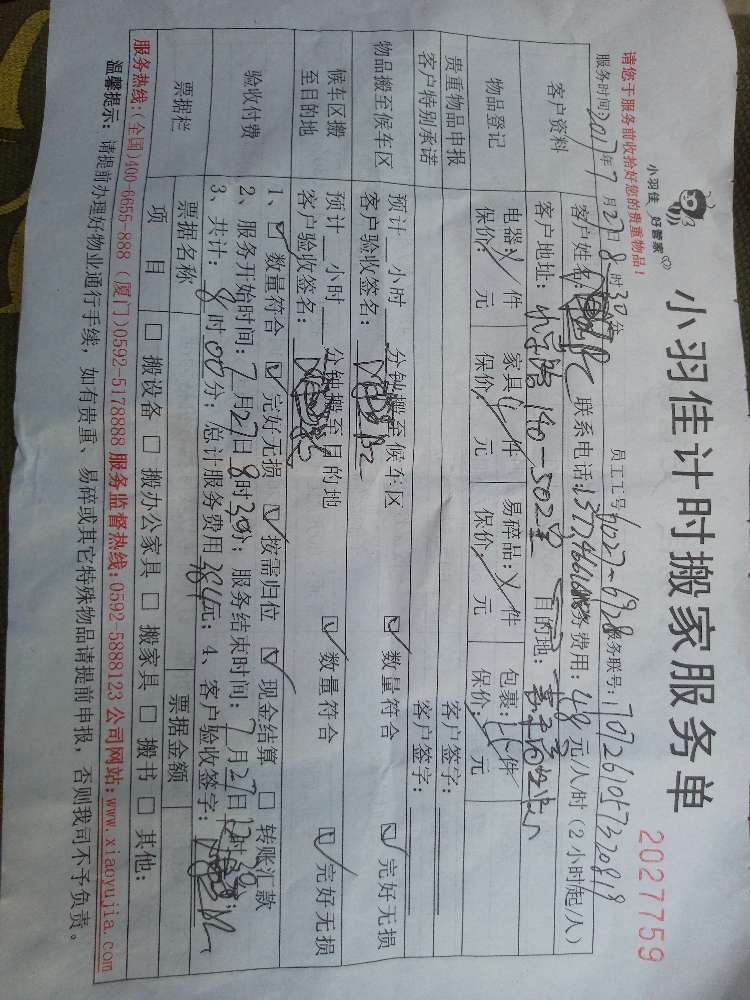 小羽佳 好管家
小羽佳计时搬家服务单
2027759
请您于服务前收拾好您的贵重物品!
员工工号 服务联号:
服务时间:2017年7月27日8时30分
客户资料
客户姓名: 联系电话: 服务费用:48元/人时(2小时起/人)
客户地址: 190-502室 目的地:
物品登记
电器: 件 家具 件 易碎品: 件 包裹: 件
保价: 元 保价: 元 保价: 元 保价: 元
贵重物品申报 客户签字:
客户特别承诺 客户签字:
物品搬至候车区
预计 小时 分钟搬至候车区
客户验收签名: 数量符合 完好无损
候车区搬至目的地
预计 小时 分钟搬至目的地
客户验收签名: 数量符合 完好无损
验收付费
1、 数量符合 完好无损 按需归位 现金结算 转账汇款
2、服务开始时间:7月27日8时30分; 服务结束时间:7月27日12时30分;
3、共计:8时00分; 总计服务费用384元; 4、客户验收签字:
票据栏
票据名称 票据金额
项目 搬设备 搬办公家具 搬家具 搬书 其他:
服务热线:(全国)400-6655-888 (厦门)0592-5178888 服务监督热线:0592-5888123 公司网站:www.xiaoyujia.com
温馨提示: 请提前办理好物业通行手续,如有贵重、易碎或其它特殊物品请提前申报,否则我司不予负责。